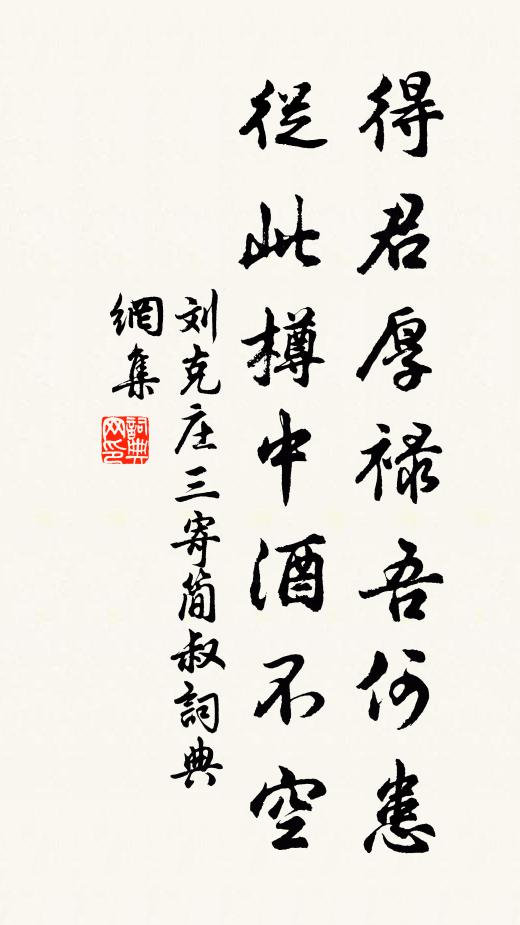 得君厚禄吾何患
從此樽中酒不空
刘克庄三寄簡叔詞典
網集
詞典網印